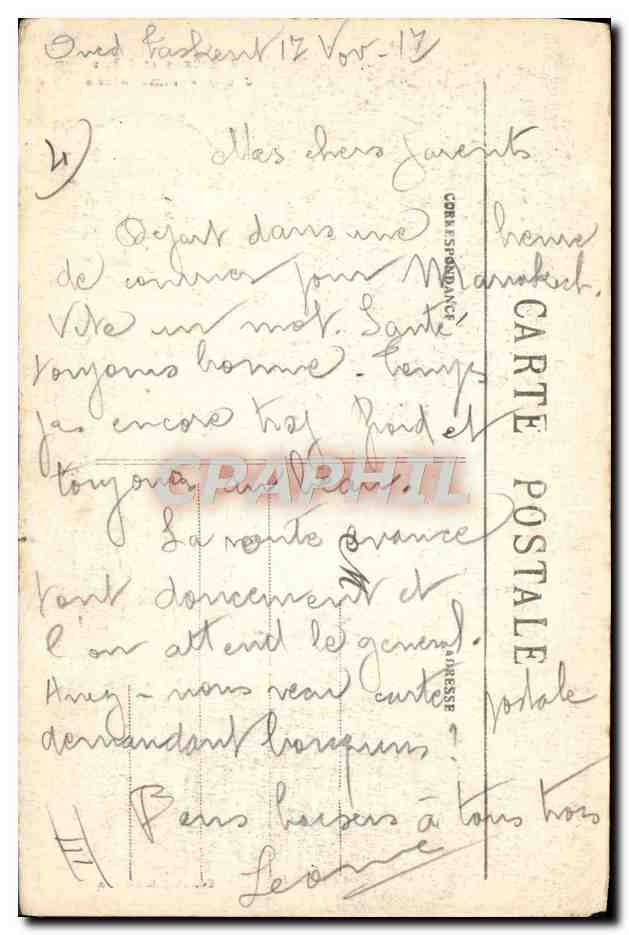 Oued Taskesit 17 Nov - 17
4)
Mes chers parents
Départ dans une heure
de courrier pour Marrakech.
Vite un mot. Santé
toujours bonne. Temps
pas encore trop froid et
toujours
La route avance
tout doucement et
l'on attend le général.
Avez-nous reçu carte postale
demandant bouquins?
Bons baisers à tous trois
Leone
III
CORRESPONDANCE
ADRESSE
CARTE POSTALE
M
CPAPHIL